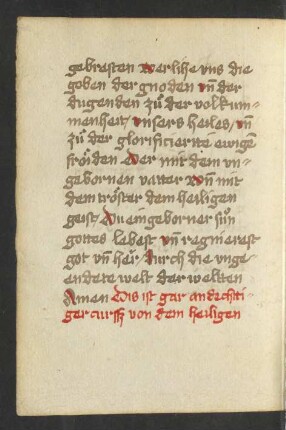 gebresten verlihe vns die
goben der gnoden vn̄ der
dugenden zů der volkum-
menheit / vnsers heiles / vn̄
zů der glorificierite ewigē
fröiden Der mit dem vn-
gebornen vatter Vn̄ mit
dem tröster dem heiligen
geist Du eingeborner sůn
gottes lebest vn̄ regnierest
got vn̄ her Durch die vnge-
endete welt der welten
Amen Dis ist gar andechti-
ger curß von dem heiligen